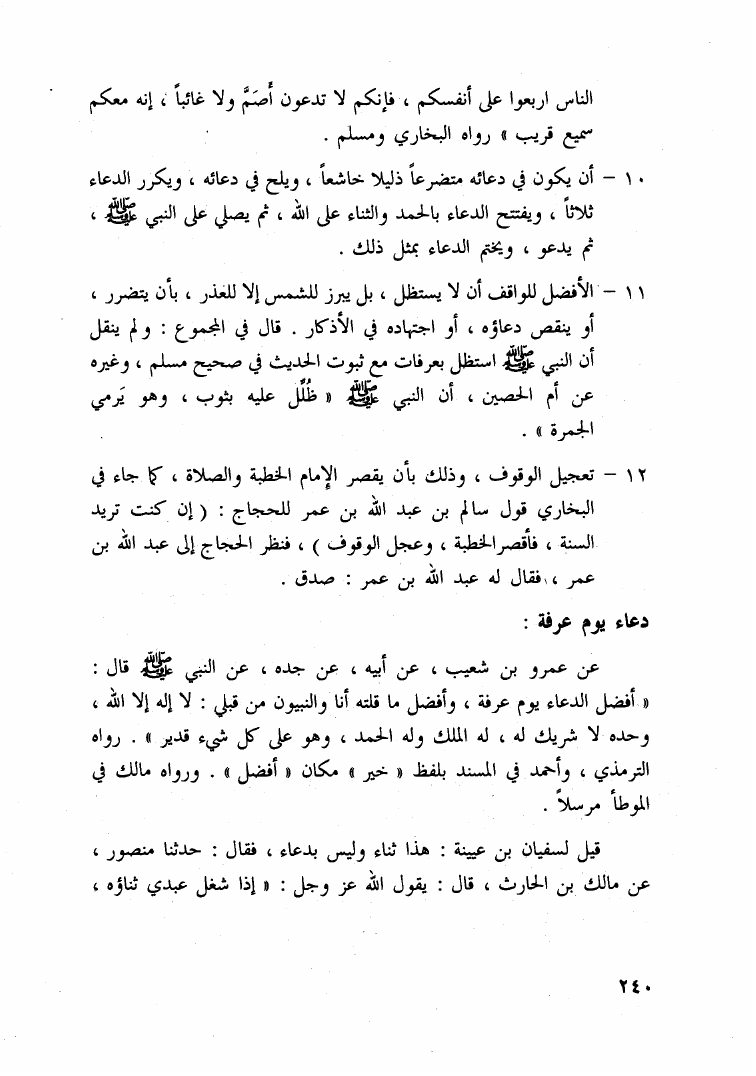 الناس اربعوا على أنفسكم ، فإنكم لا تدعون أَصَمَّ ولا غائباً ، إنه معكم
سميع قريب » رواه البخاري ومسلم .
١٠ – أن يكون في دعائه متضرعاً ذليلا خاشعاً ، ويلح في دعائه ، ويكرر الدعاء
ثلاثاً ، ويفتتح الدعاء بالحمد والثناء على الله ، ثم يصلي على النبي ﷺ ،
ثم يدعو ، ويختم الدعاء بمثل ذلك .
١١ – الأفضل للواقف أن لا يستظل ، بل يبرز للشمس إلا للعذر ، بأن يتضرر ،
أو ينقص دعاؤه ، أو اجتهاده في الأذكار . قال في المجموع : ولم ينقل
أن النبي ﷺ استظل بعرفات مع ثبوت الحديث في صحيح مسلم ، وغيره
عن أم الحصين ، أن النبي ﷺ « ظُلِّل عليه بثوب ، وهو يَرمي
الجمرة » .
١٢ – تعجيل الوقوف ، وذلك بأن يقصر الإمام الخطبة والصلاة ، كما جاء في
البخاري قول سالم بن عبد الله بن عمر للحجاج : ( إن كنت تريد
السنة ، فأقصر الخطبة ، وعجل الوقوف ) ، فنظر الحجاج إلى عبد الله بن
عمر ، فقال له عبد الله بن عمر : صدق .
دعاء يوم عرفة :
عن عمرو بن شعيب ، عن أبيه ، عن جده ، عن النبي ﷺ قال :
« أفضل الدعاء يوم عرفة ، وأفضل ما قلته أنا والنبيون من قبلي : لا إله إلا الله ،
وحده لا شريك له ، له الملك وله الحمد ، وهو على كل شيء قدير » . رواه
الترمذي ، وأحمد في المسند بلفظ « خير » مكان « أفضل » . ورواه مالك في
الموطأ مرسلاً .
قيل لسفيان بن عيينة : هذا ثناء وليس بدعاء ، فقال : حدثنا منصور ،
عن مالك بن الحارث ، قال : يقول الله عز وجل : « إذا شغل عبدي ثناؤه ،
٢٤٠